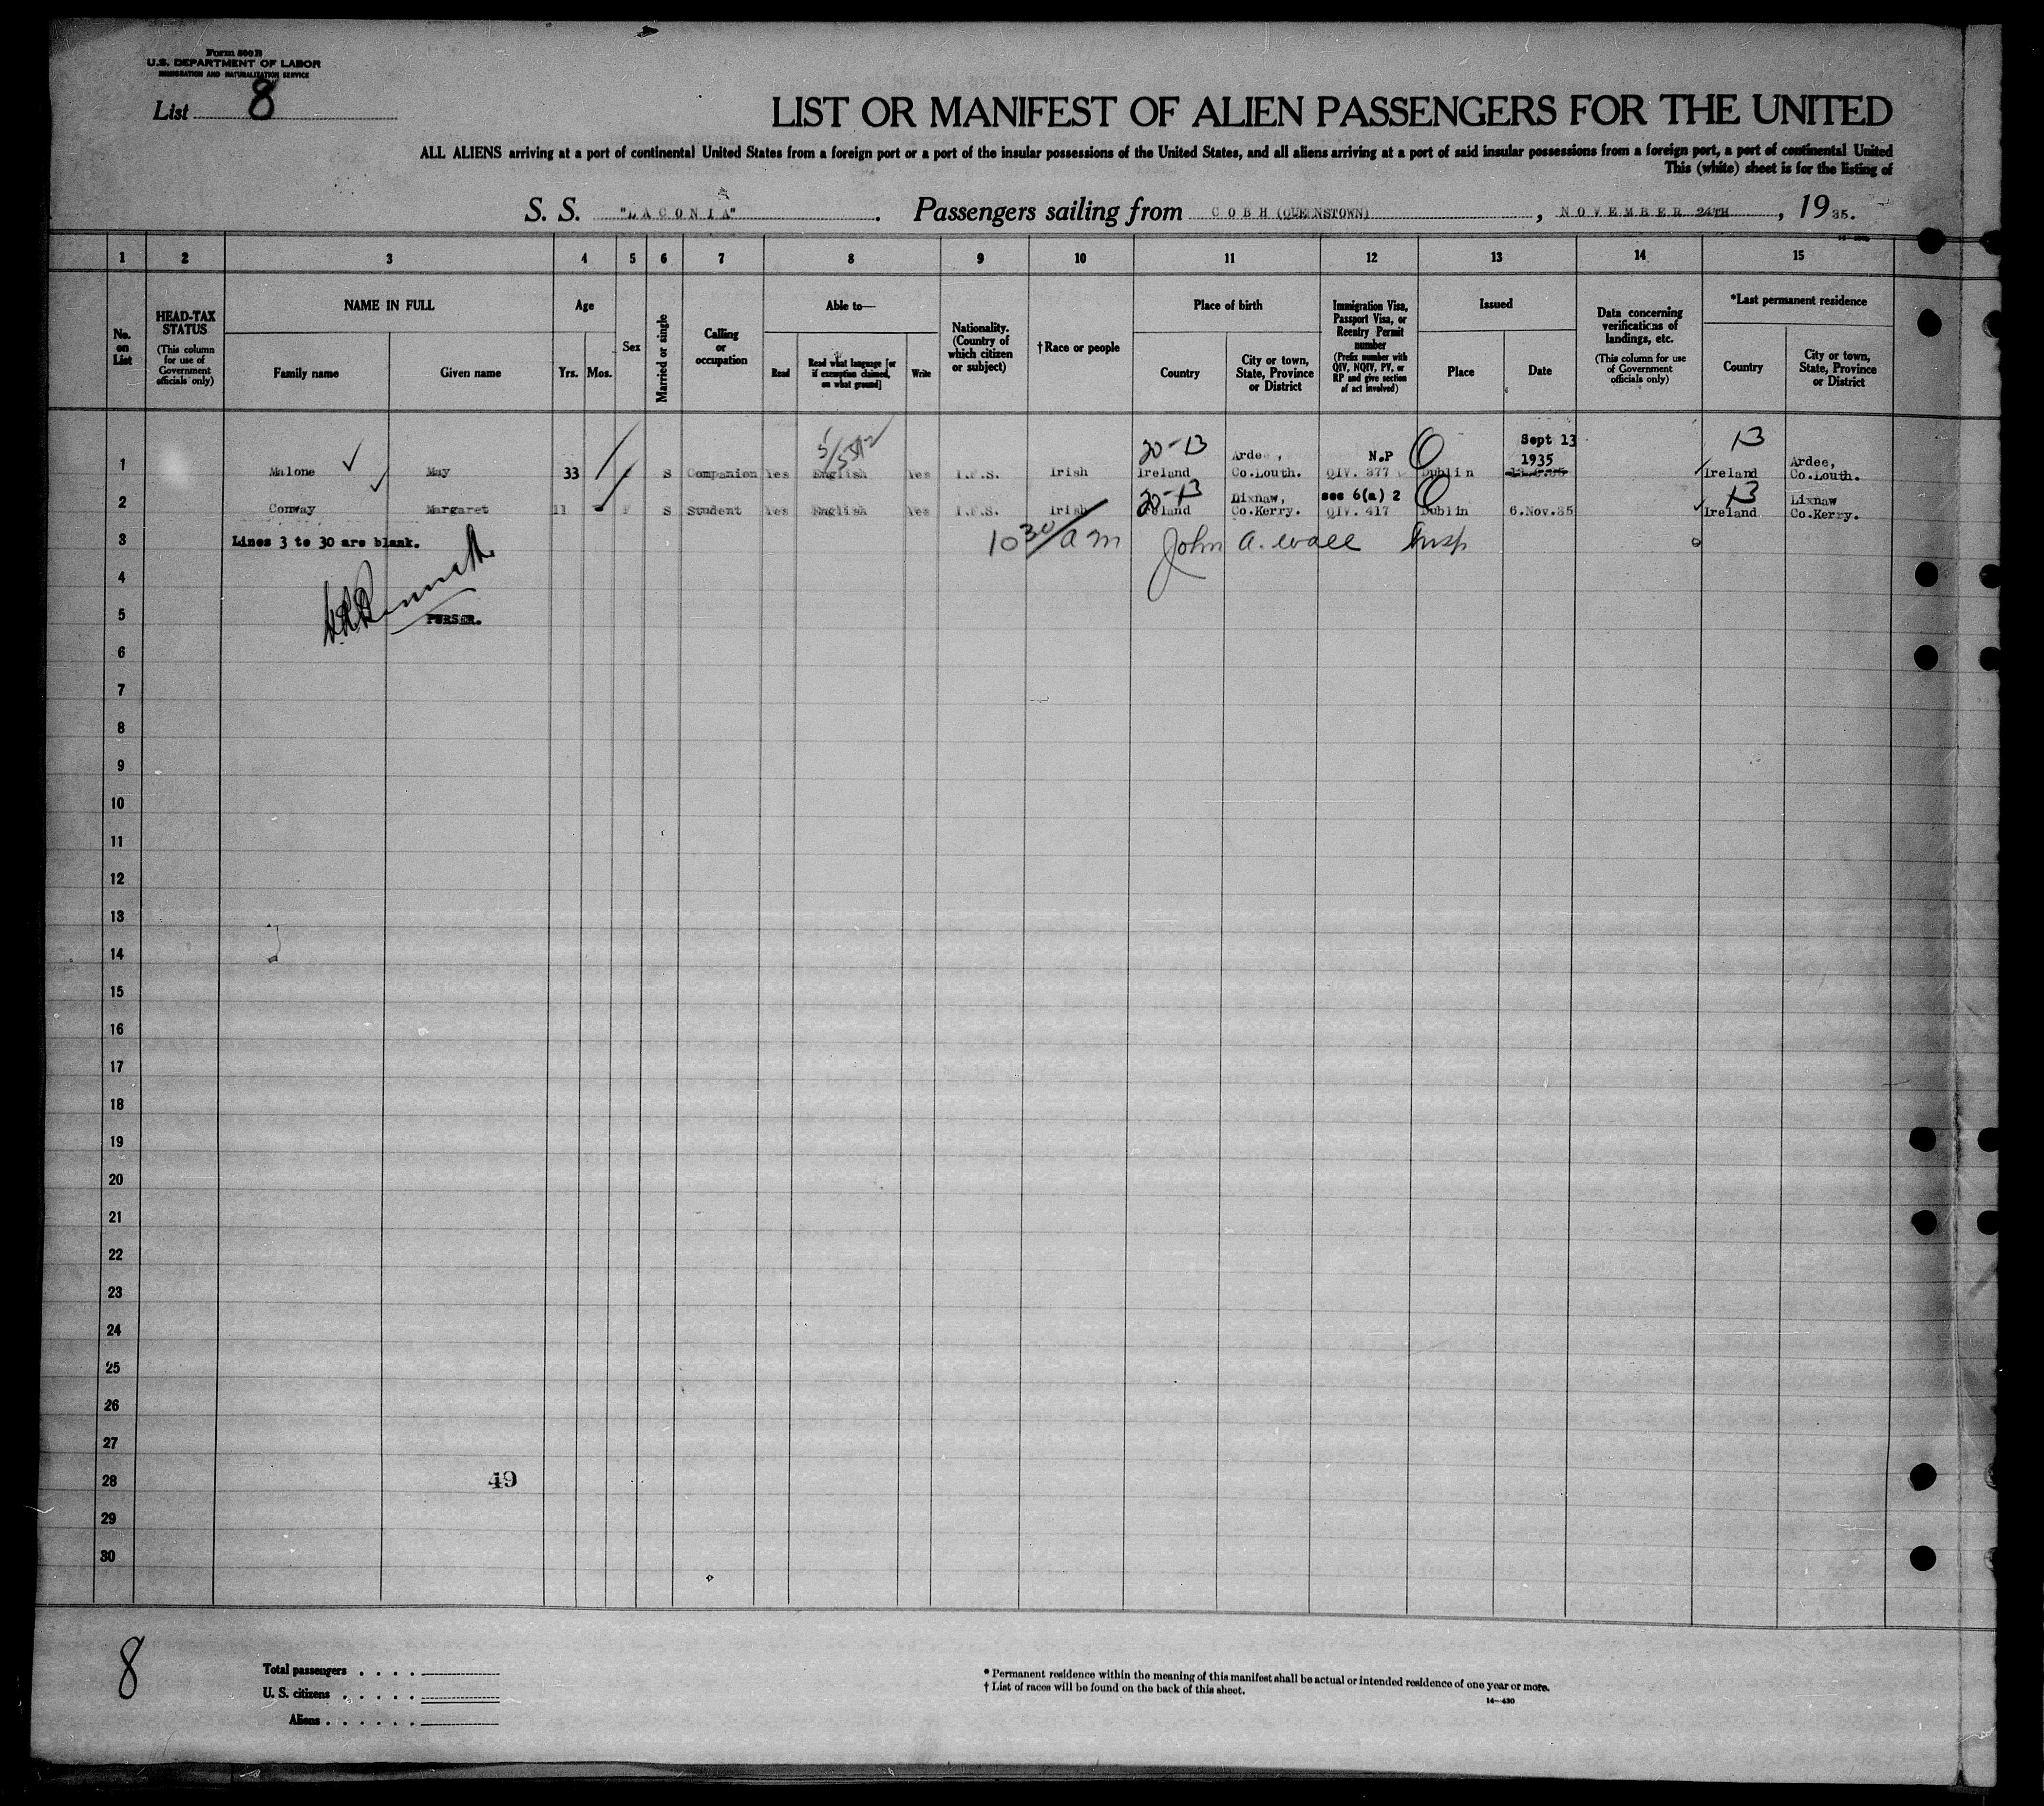 Form 500 B
U.S. DEPARTMENT OF LABOR
IMMIGRATION AND NATURALIZATION SERVICE
List 8
LIST OR MANIFEST OF ALIEN PASSENGERS FOR THE UNITED
ALL ALIENS arriving at a port of continental United States from a foreign port or a port of the insular possessions of the United States, and all aliens arriving at a port of said insular possessions from a foreign port, a port of continental United
This (white) sheet is for the listing of
S. S. "LACONIA". Passengers sailing from COBH (QUEENSTOWN), NOVEMBER 24TH, 1935.
1 2 3 4 5 6 7 8 9 10 11 12 13 14 15
No. on List
HEAD-TAX STATUS
(This column for use of Government officials only)
NAME IN FULL
Family name
Given name
Age
Yrs. Mos.
Sex
Married or single
Calling or occupation
Able to—
Read
Read what language [or if exemption claimed, on what ground]
Write
Nationality. (Country of which citizen or subject)
†Race or people
Place of birth
Country
City or town, State, Province or District
Immigration Visa, Passport Visa, or Reentry Permit number
(Prefix number with QIV, NQIV, PV, or RP and give section of act involved)
Issued
Place
Date
Data concerning verifications of landings, etc.
(This column for use of Government officials only)
*Last permanent residence
Country
City or town, State, Province or District
20-13 Sept 13 13
Ardee, N.P 1935 Ardee,
1 Malone May 33 S Companion Yes English Yes I.F.S. Irish Ireland Co.Louth. QIV. 377 Dublin Ireland Co.Louth.
20-13 Lixnaw, sec 6(a) 2 13 Lixnaw
2 Conway Margaret 11 F S Student Yes English Yes I.F.S. Irish Ireland Co.Kerry. QIV. 417 Dublin 6.Nov.35 Ireland Co.Kerry.
3 Lines 3 to 30 are blank. 10 30 am John A. Wall Insp
4
5 PURSER.
6
7
8
9
10
11
12
13
14
15
16
17
18
19
20
21
22
23
24
25
26
27
28 49
29
30
8
Total passengers . . . .
U. S. citizens . . . . .
Aliens . . . . . .
* Permanent residence within the meaning of this manifest shall be actual or intended residence of one year or more.
† List of races will be found on the back of this sheet.
14—430